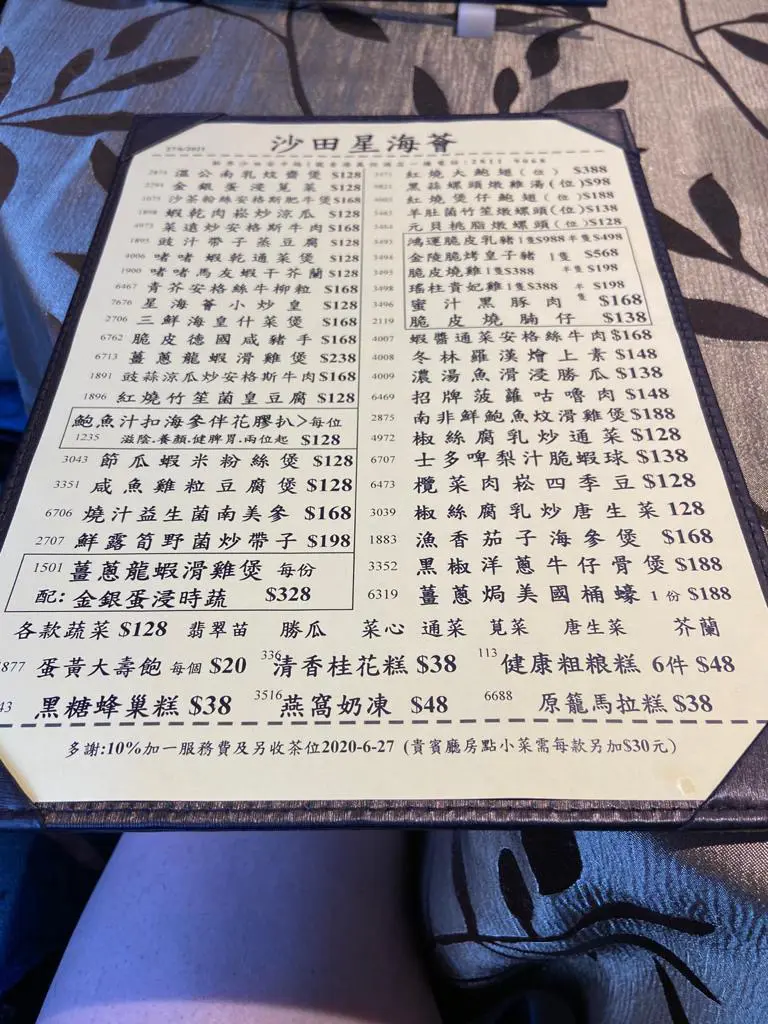 沙田星海薈
27/6/2021
溫公南乳炆齋煲 $128
金銀蛋浸莧菜 $128
1075 沙茶粉絲安格斯肥牛煲 $168
1898 蝦乾肉崧炒涼瓜 $128
4973 菜遠炒安格斯牛肉 $168
1895 豉汁帶子蒸豆腐 $128
4006 啫啫蝦乾通菜煲 $128
1900 啫啫馬友蝦干芥蘭 $128
6467 青芥安格絲牛柳粒 $168
7676 星海薈小炒皇 $128
2706 三鮮海皇什菜煲 $168
6762 脆皮德國咸豬手 $168
6713 薑蔥龍蝦滑雞煲 $238
1891 豉蒜涼瓜炒安格斯牛肉 $168
1896 紅燒竹笙菌皇豆腐 $128
鮑魚汁扣海參伴花膠扒>每位
1235 滋陰.養顏.健脾胃.兩位起 $128
3043 節瓜蝦米粉絲煲 $128
3351 咸魚雞粒豆腐煲 $128
6706 燒汁益生菌南美參 $168
2707 鮮露筍野菌炒帶子 $198
1501 薑蔥龍蝦滑雞煲 每份
配: 金銀蛋浸時蔬 $328
紅燒大鮑翅(位) $388
黑蒜螺頭燉雞湯(位) $98
紅燒煲仔鮑翅(位) $188
羊肚菌竹笙燉螺頭(位) $138
元貝桃脂燉螺頭(位) $128
3493 鴻運脆皮乳豬 1隻 $988 半隻 $498
3494 金陵脆烤皇子豬 1隻 $568
3495 脆皮燒雞 1隻 $388 半隻 $198
3498 瑤柱貴妃雞 1隻 $388 半隻 $198
3496 蜜汁黑豚肉 $168
2119 脆皮燒腩仔 $138
4007 蝦醬通菜安格絲牛肉 $168
4008 冬林羅漢燴上素 $148
4009 濃湯魚滑浸勝瓜 $138
6469 招牌菠蘿咕嚕肉 $148
2875 南非鮮鮑魚炆滑雞煲 $288
4972 椒絲腐乳炒通菜 $128
6707 士多啤梨汁脆蝦球 $138
6473 欖菜肉崧四季豆 $128
3039 椒絲腐乳炒唐生菜 128
1883 漁香茄子海參煲 $168
3352 黑椒洋蔥牛仔骨煲 $188
6319 薑蔥焗美國桶蠔 1份 $188
各款蔬菜 $128 翡翠苗 勝瓜 菜心 通菜 莧菜 唐生菜 芥蘭
877 蛋黃大壽飽 每個 $20 336 清香桂花糕 $38 113 健康粗粮糕 6件 $48
43 黑糖蜂巢糕 $38 3516 燕窩奶凍 $48 6688 原籠馬拉糕 $38
多謝:10%加一服務費及另收茶位2020-6-27 (貴賓廳房點小菜需每款另加$30元)